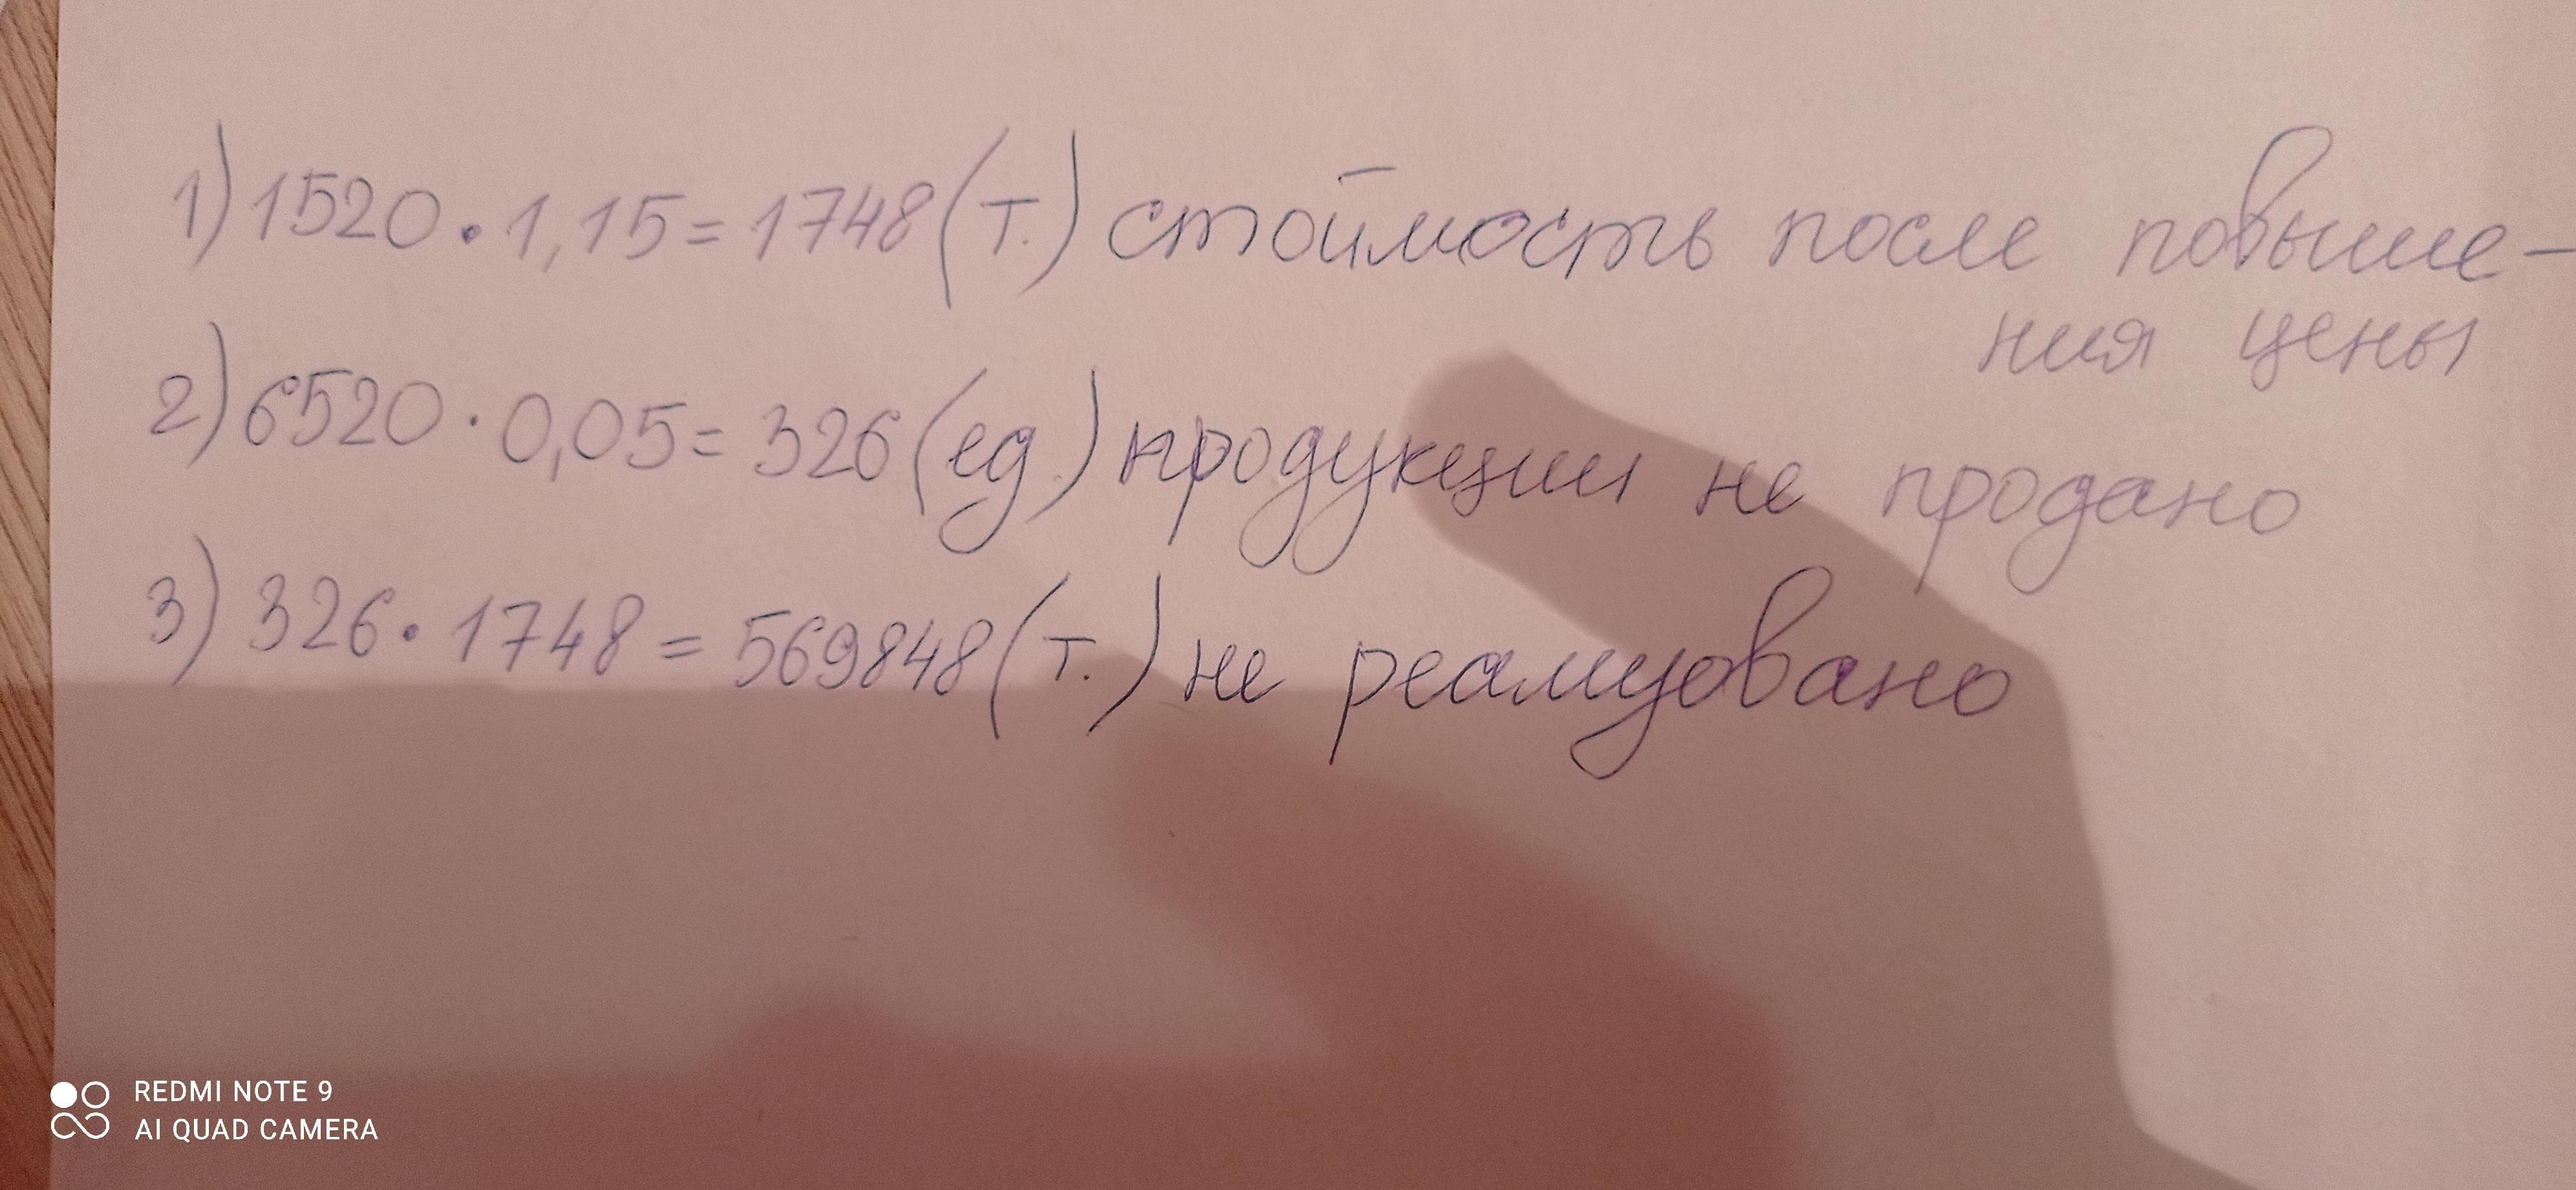 1) 1520 · 1,15 = 1748 (т.) стоймость после повыше-
ния цены
2) 6520 · 0,05 = 326 (ед.) продукции не продано
3) 326 · 1748 = 569848 (т.) не реализовано
REDMI NOTE 9
AI QUAD CAMERA